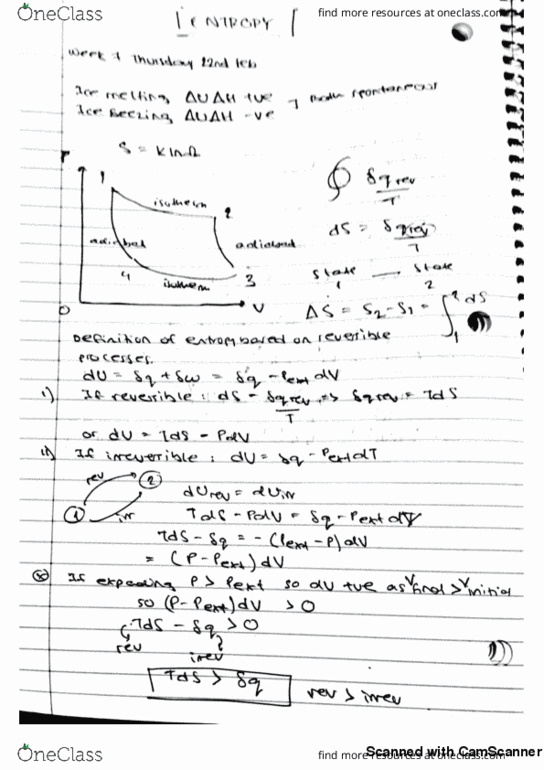 OneClass find more resources at oneclass.com
ENTROPY
Week 7 Thursday 22nd Feb
Ice melting, ΔU ΔH +ve
Ice freezing, ΔU ΔH -ve
Both spontaneous
S = k ln Ω
P
1
isotherm
2
adiabat
adiabat
4
isotherm
3
O
V
∮ δq rev / T
dS = δq rev / T
State 1 → State 2
ΔS = S₂ - S₁ = ∫₁² dS
Definition of entropy based on reversible
processes.
dU = δq + δw = δq - Pext dV
i) If reversible : dS = δq rev / T => δq rev = TdS
or dU = TdS - PdV
ii) If irreversible : dU = δq - Pext dT
rev
1
2
irr
dUrev = dUirr
TdS - PdV = δq - Pext dV
TdS - δq = - (Pext - P) dV
= (P - Pext) dV
If expanding P > Pext so dV +ve as Vfinal > Vinitial
so (P - Pext) dV > 0
TdS - δq > 0
rev
irev
TdS > δq
rev > irrev
Scanned with CamScanner
OneClass find more resources at oneclass.com